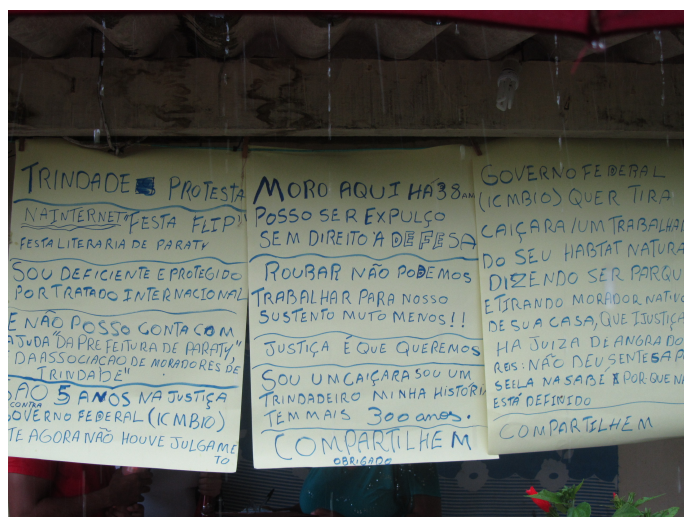 TRINDADE PROTESTA
NA INTERNET "FESTA FLIP"
FESTA LITERARIA DE PARATY
SOU DEFICIENTE E PROTEGIDO
POR TRATADO INTERNACIONAL
E NÃO POSSO CONTA COM
AJUDA DA PREFEITURA DE PARATY,"
"DA ASSOCIACAO DE MORADORES DE
TRINDADE"
SÃO 5 ANOS NA JUSTIÇA
CONTRA
GOVERNO FEDERAL (ICMBIO)
TE AGORA NÃO HOUVE JULGAME
TO
MORO AQUI HÁ 38 AN
POSSO SER EXPULÇO
SEM DIREITO A DEFESA
ROUBAR NÃO PODEMOS
TRABALHAR PARA NOSSO
SUSTENTO MUTO MENOS!!
JUSTIÇA É QUE QUEREMOS
SOU UM CAIÇARA SOU UM
TRINDADEIRO MINHA HISTÓRI
TEM MAIS 300 anos.
COMPARTILHEM
OBRIGADO
GOVERNO FEDERAL
(ICMBIO) QUER TIRA
CAIÇARA/UM TRABALHA
DO SEU HABTAT NATURA
DIZENDO SER PARQU
E TIRANDO MORADOR NATIVO
DE SUA CASA, QUE IJUSTIÇA
HÁ JUIZA DE ANGRA DO
REIS: NÃO DEU SENTESA P
SE ELA NASABI POR QUE NA
ESTÁ DEFINIDO
COMPARTILHEM